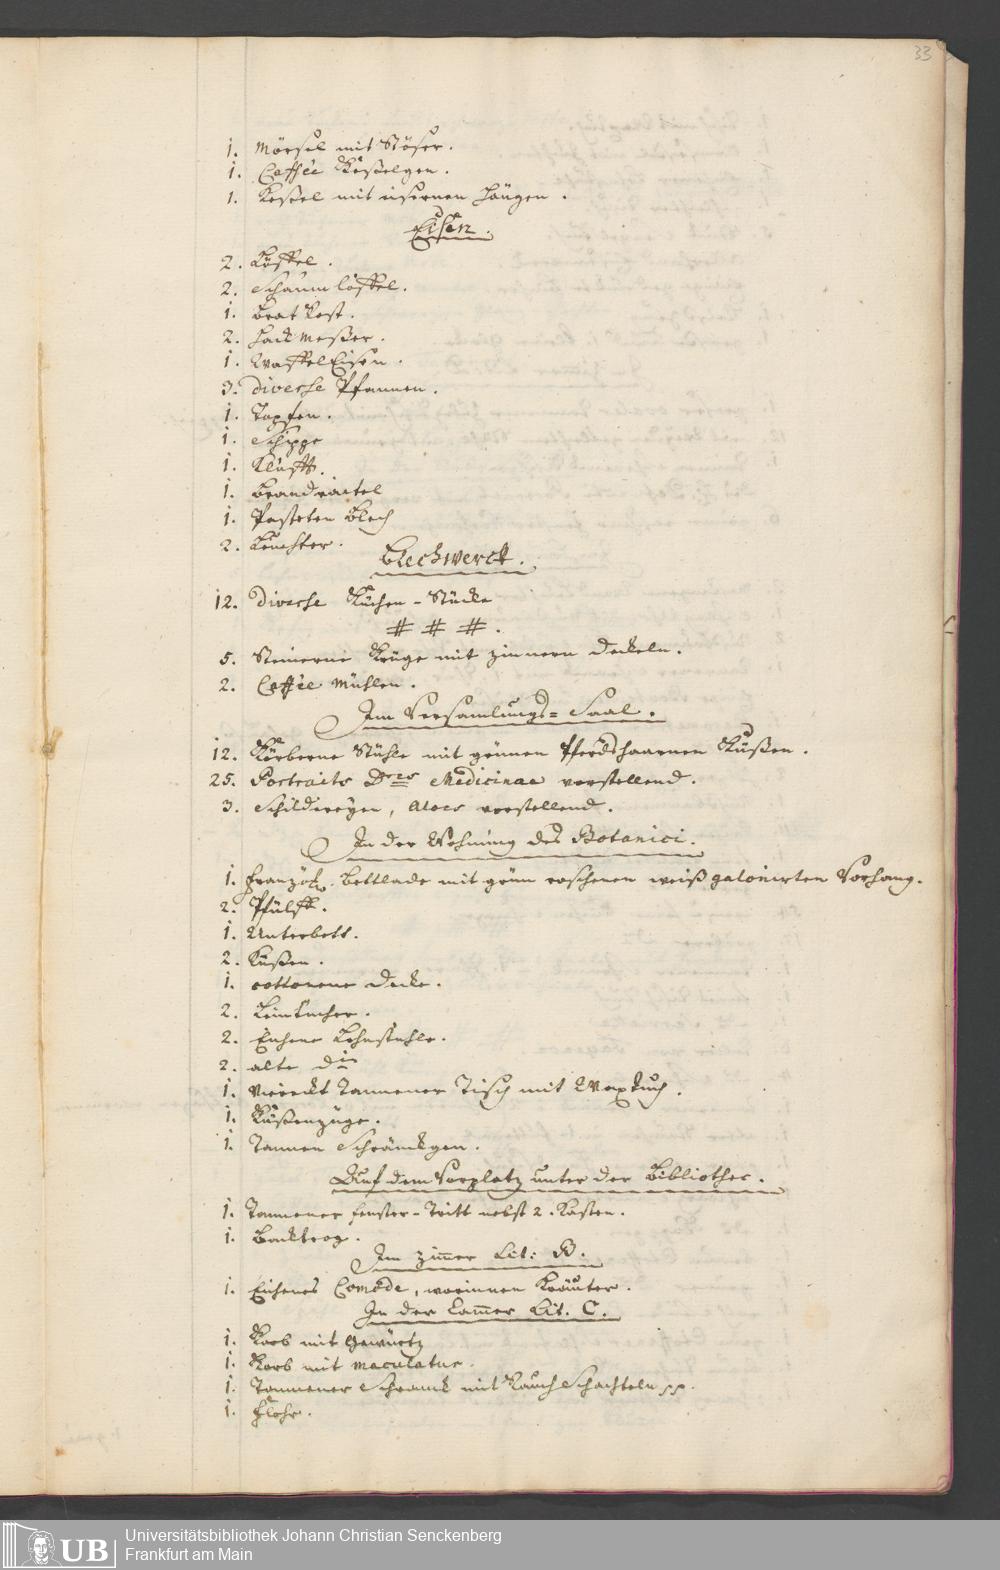 33
1. Mörsel mit Stöser.
1. Caffée Keßelgen.
1. Keßel mit eisernen Hängen.
Eisen.
2. Löffel.
2. Schaum löffel.
1. Brat Rost.
2. Hack Meßer.
1. WaffelEisen.
3. diverse Pfannen.
1. Topfen.
1. Schippe
1. Klufft.
1. Brandraitel
1. Pasteten Blech
2. Leuchter.
Blechwerck.
12. Diverse Küchen-Stücke
# # #.
5. Steinerne Krüge mit zinnern Deckeln.
2. Caffée Mühlen.
Im Versamlungs-Saal.
12. Körberne Stühle mit grünen Pferdshaarnen Küßen.
25. Portraits Dres Medicinae vorstellend.
3. Schildereyen, Aloes vorstellend.
In der Wohnung des Botanici.
1. Französ. Bettlade mit grün raschenen weiß galonirten Vorhang.
2. Pfülff.
1. Unterbett.
2. Küßen.
1. cottonene Decke.
2. Leintücher.
2. Eichene Lehnstühle.
2. alte dio
1. viereckt Tannener Tisch mit Waxtuch.
1. Küßenzüge.
1. Tannen Schränckgen.
Auf dem Vorplatz unter der Bibliothec.
1. Tannener Fenster-Tritt nebst 2. Kasten.
1. Backtrog.
Im Zimmer Lit: B.
1. Eichenes Comode, worinnen Kräuter.
In der Cammer Lit. C.
1. Korb mit Gewürtz
1. Korb mit Maculatur.
1. Tannener Schranck mit Rauch Schachteln pp.
1. Flohr.
UB
Universitätsbibliothek Johann Christian Senckenberg
Frankfurt am Main